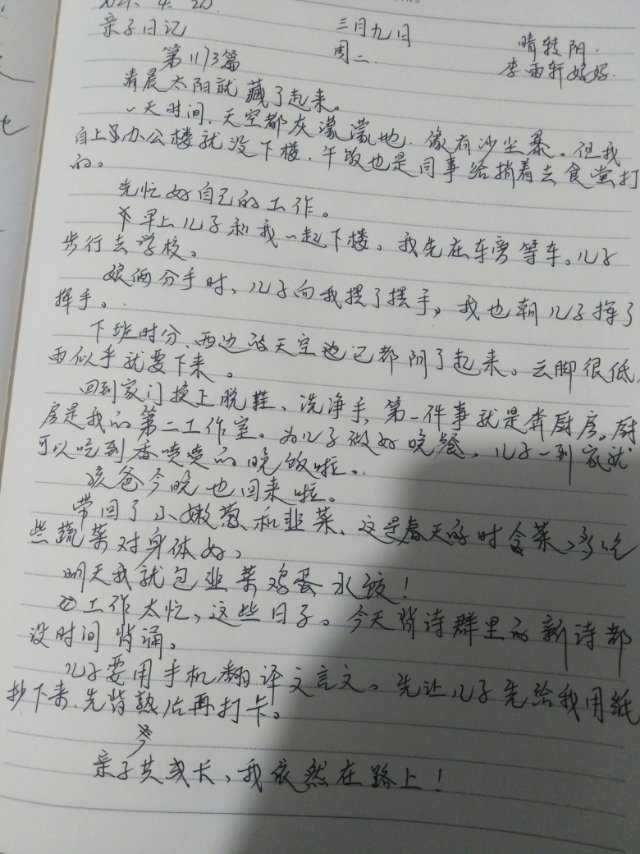 亲子日记 三月九日 晴转阴.
第1173篇 周二. 李雨轩妈妈.
清晨太阳就藏了起来。
一天时间,天空都灰濛濛地.像有沙尘暴。但我
自上了办公楼就没下楼,午饭也是同事给捎着去食堂打
的。
先忙好自己的工作。
早上儿子和我一起下楼,我先在车旁等车。儿子
步行去学校。
娘俩分手时、儿子向我摆了摆手,我也朝儿子挥了
挥手。
下班时分,西边的天空也已都阴了起来。云脚很低,
雨似乎就要下来。
回到家门换上脱鞋、洗净手,第一件事就是奔厨房。厨
房是我的第二工作室。为儿子做好晚餐,儿子一到家就
可以吃到香喷喷的晚饭啦。
孩爸今晚也回来啦。
带回了小嫩葱和韭菜、这是春天的时令菜、多吃
些蔬菜对身体好,
明天我就包韭菜鸡蛋水饺!
工作太忙,这些日子。今天背诗群里的新诗都
没时间背诵。
儿子要用手机翻译文言文。先让儿子先给我用纸
抄下来.先背熟后再打卡。
亲子共成长,我依然在路上!